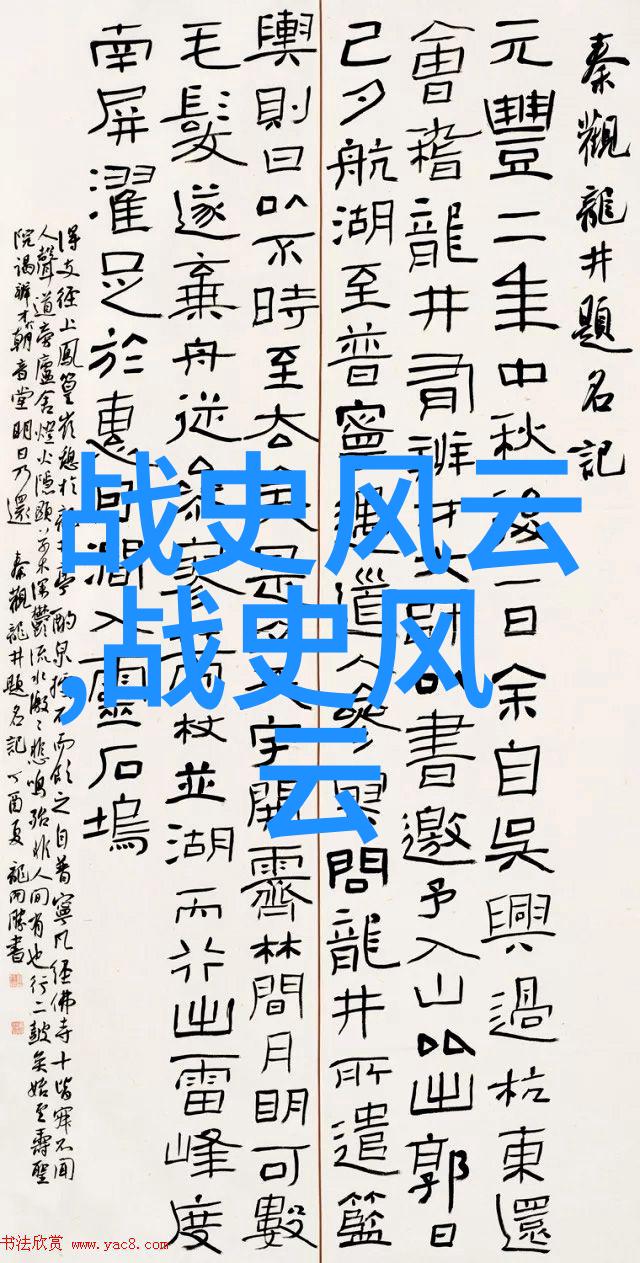 秦觀龍井題名記
元豐二年中秋後一日余自吳興過杭東還
會稽龍井有辨才大師以書邀予入山比出郭日
已夕航湖至普寧遇道人參寥問龍井所遣籃
輿則曰以不時至去矣是夕天宇開霽林間月明可數
毛髮遂棄舟從參寥策杖並湖而行出雷峰度
南屏濯足於惠因澗入靈石塢
得支徑上鳳篁嶺憩於龍井亭酌泉據石而飲之自普寧凡經佛寺十皆寂不聞
人聲道旁廬舍燈火隱顯草木深鬱流水激激悲鳴殆非人間有也行二鼓矣始至壽聖
院謁辨才於朝音堂明日乃還 秦觀龍井題名記 丁酉夏 龍開勝書
战史风云
,战史风
云
书法欣赏 www.yac8.com